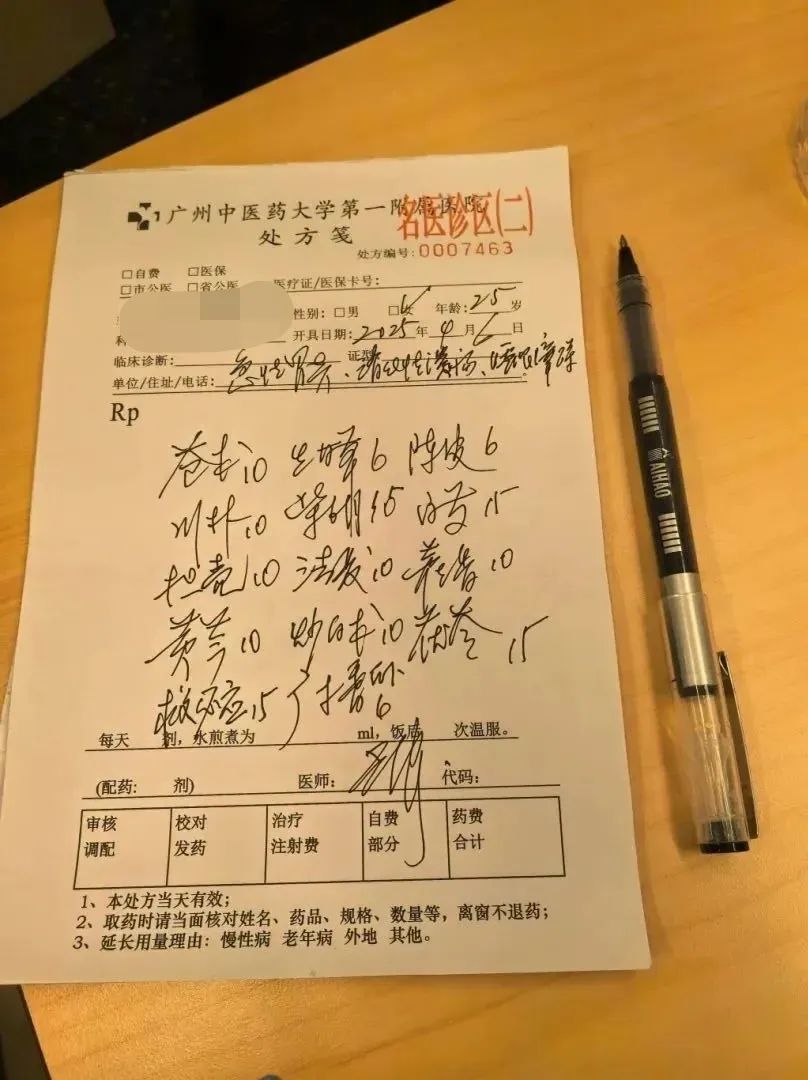 1 广州中医药大学第一附属医院
名医诊区(二)
处方笺
处方编号:0007463
□自费 □医保
□市公医 □省公医 医疗证/医保卡号:
性别: □男 □女 年龄: 25 岁
开具日期: 2025 年 4 月 6 日
临床诊断:
急性胃炎、睡眠障碍
单位/住址/电话:
Rp
苍术10 生甘草6 陈皮6
川朴10 柴胡15 白芍15
枳壳10 法夏10 10
黄芩10 炒白术10 茯苓15
15 广木香 6
每天 剂，水煎煮为 ml，饭后 次温服。
(配药: 剂) 医师: 代码:
审核 校对 治疗 自费 药费
调配 发药 注射费 部分 合计
1、本处方当天有效；
2、取药时请当面核对姓名、药品、规格、数量等，离窗不退药；
3、延长用量理由：慢性病 老年病 外地 其他。
AIHAO